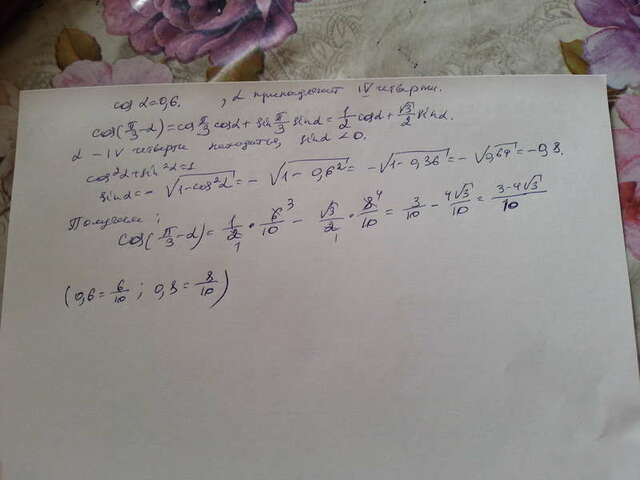 cos α=0,6. , α принадлежит IV четверти.
cos(π/3-α)=cos π/3 cosα+ sin π/3 sinα= 1/2 cosα+ √3/2 sinα.
α - IV четверти находится, sinα<0.
cos²α+sin²α=1
sinα= - √1-cos²α = - √1-0,6² = -√1-0,36 = -√0,64 = -0,8.
Получаем:
cos(π/3-α)= 1/2 · 6/10 - √3/2 · 8/10 = 3/10 - 4√3/10 = 3-4√3/10
(0,6= 6/10 ; 0,8= 8/10)